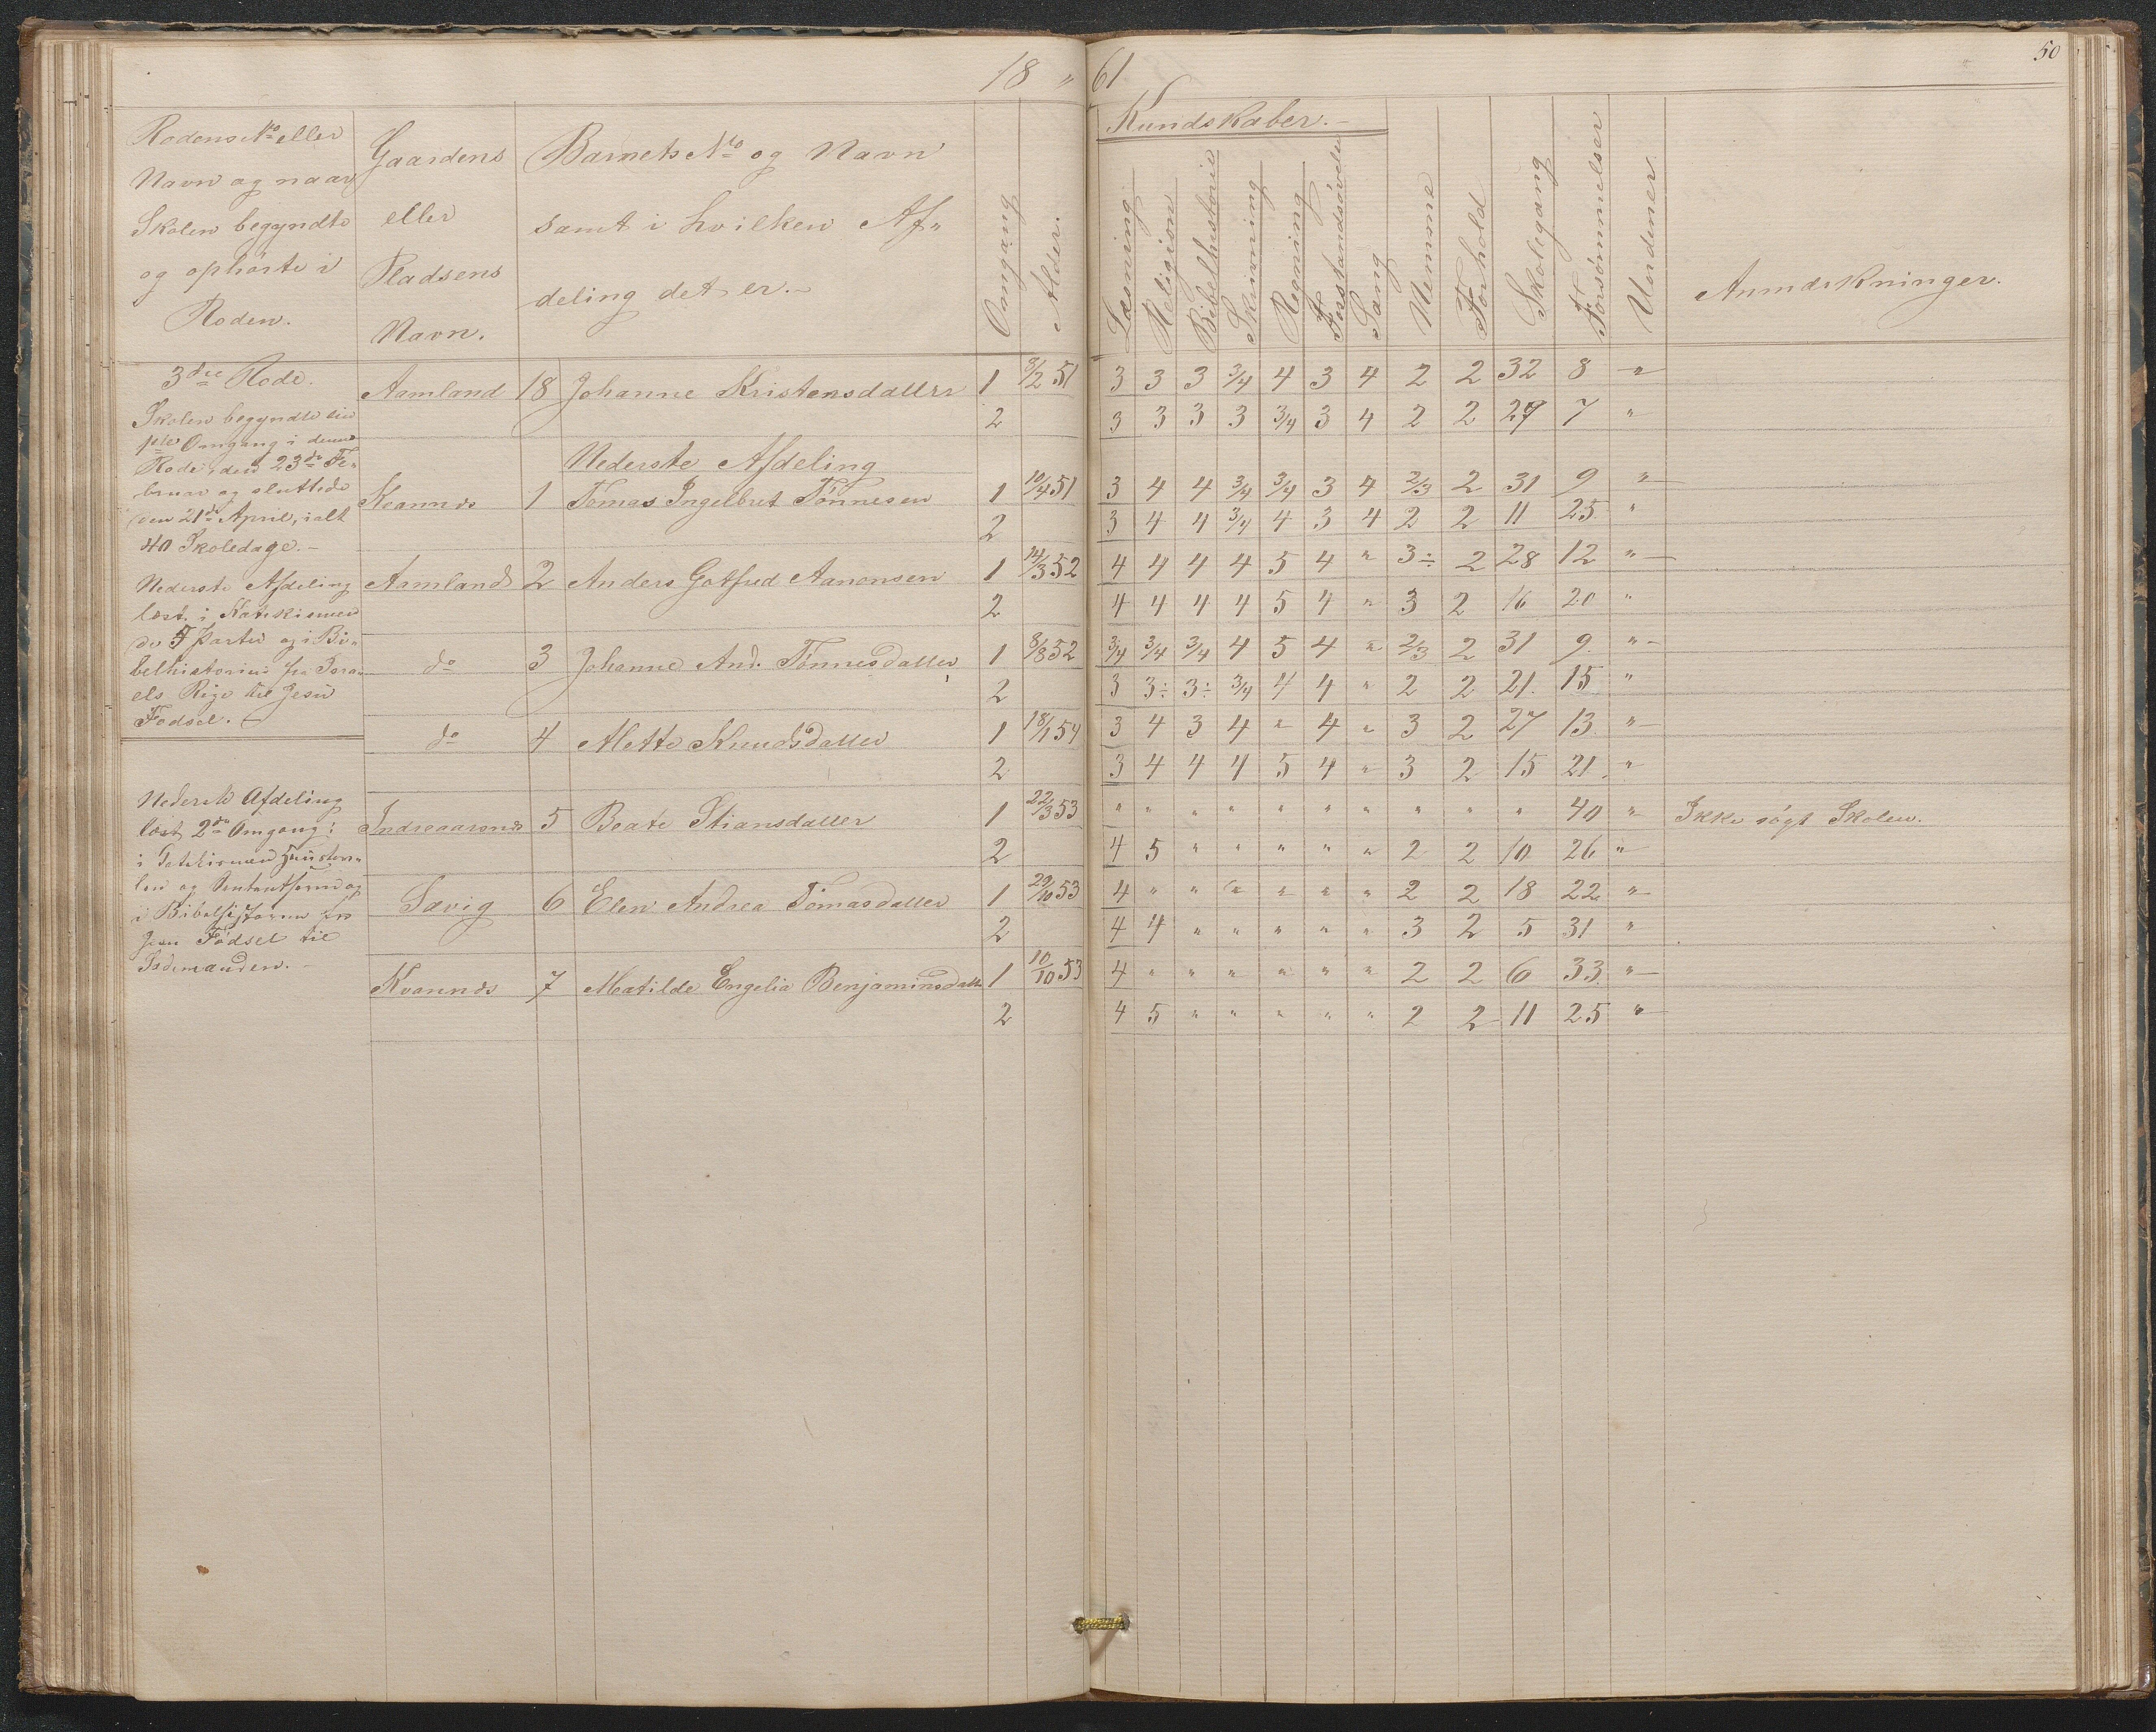 18 " 61
50
Rodens No eller
Navn og naar
Skolen begyndte
og ophørte i
Roden.
Gaardens
eller
Pladsens
Navn.
Barnets No og Navn
samt i hvilken Af„
deling det er.-
Omgang
Alder.
Kundskaber.-
Læsning
Religion
Bibelhistorie
Skrivning
Regning
Forstandsøvelse
Sang
Nemme
Forhold
Skolegang
Forsømmelser
Anmærkninger.
3die Rode.
Skolen begyndte sin
1ste Omgang i denne
Rode den 23de Fe„
bruar og sluttede
den 21de April, ialt
40 Skoledage.-
Nederste Afdeling
læst i Katekismen
de 5 Parter og i Bi„
belhistorien fra Isra„
els Rige til Jesu
Fødsel.
Nederste Afdeling
læst 2den Omgang:
i Katekismen
og
i Bibelhistorien fra
Jesu Fødsel til
Aamland 18 Johanne Kristensdatter 1 3/2 51 3 3 3 3/4 4 3 4 2 2 32 8 "
2 3 3 3 3 3/4 3 4 2 2 29 7 "
Nederste Afdeling
Kvannæs 1 Tomas Ingelbret Tønnesen 1 10/4 51 3 4 4 3/4 3/4 3 4 2/3 2 31 9 "
2 3 4 4 3/4 4 3 4 2 2 11 25 "
Aamland 2 Anders Gotfred Aanonsen 1 14/3 52 4 4 4 4 5 4 " 3÷ 2 28 12 "
2 4 4 4 4 5 4 " 3 2 16 20 "
do 3 Johanne And. Tønnesdatter 1 8/8 52 3/4 3/4 3/4 4 5 4 " 2/3 2 31 9. "
2 3 3÷ 3÷ 3/4 4 4 " 2 2 21. 15 "
do 4 Mette Knudsdatter 1 18/1 54 3 4 3 4 " 4 " 3 2 27 13 "
2 3 4 4 4 5 4 " 3 2 15 21 "
Indreaasen 5 Beate Stiansdatter 1 22/3 53 " " " " " " " " " " 40 " Ikke søgt Skolen.
2 4 5 " " " " " 2 2 10 26 "
Sævig 6 Elen Andrea Tomasdatter 1 29/10 53 4 " " " " " " 2 2 18 22 "
2 4 4 " " " " " 3 2 5 31 "
Kvannæs 7 Matilde Engelia Benjaminsdatter 1 10/10 53 4 " " " " " " 2 2 6 33. "
2 4 5 " " " " " 2 2 11 25 "